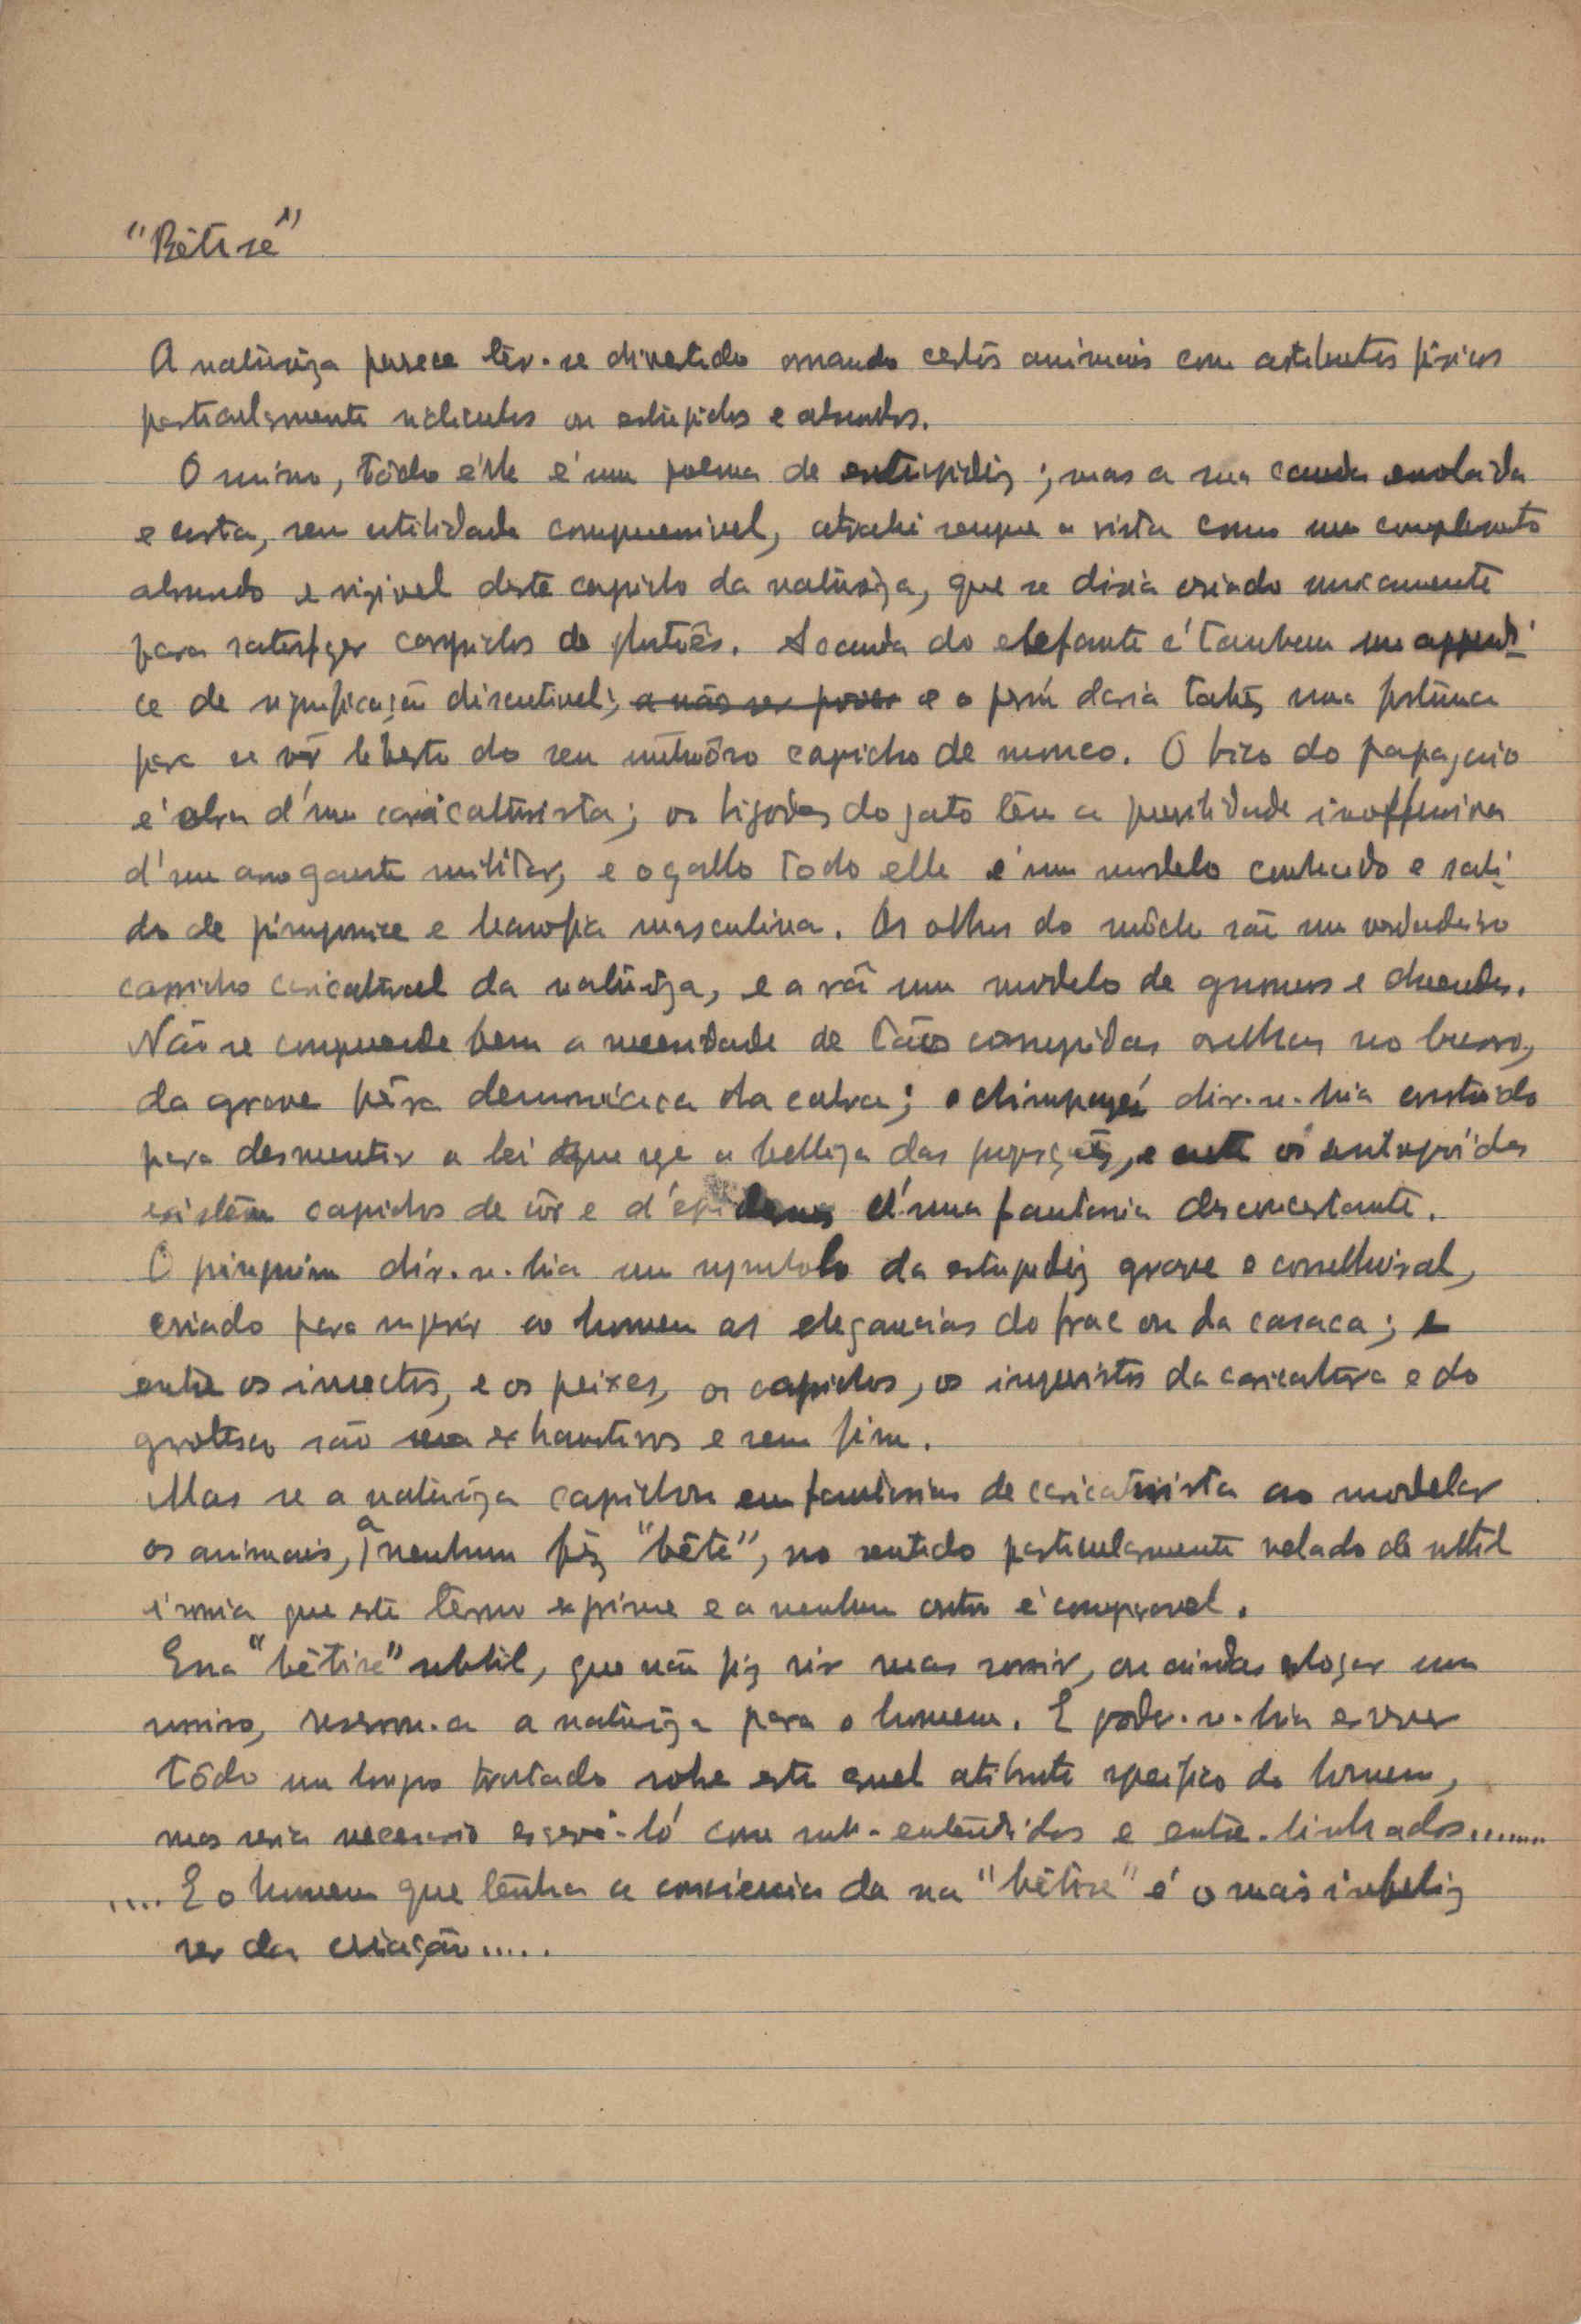 "Bêtise"
A natureza parece têr-se divertido ornando certos animais com atributos fisicos
particularmente ridiculos ou estupidos e absurdos.
O suino, tôdo êlle é um poema de estupidez; mas a sua cauda enrolada
e curta, sem utilidade comprensivel, atrahe sempre a vista como um complemento
absurdo e risivel deste capricho da natureza, que se diria criado unicamente
para satisfazer caprichos de glutões. A cauda do elefante é tambem um appendi-
ce de significação discutivel; a não ser para e o perú daria talvez uma fortuna
para se vêr liberto do seu capricho de monco. O bico do papagaio
é obra d'um caricaturista; os bigodes do gato têm a inoffensiva
d'um arrogante militar, e o gallo todo elle é um modelo conhecido e sabi-
do de pimponice e masculina. Os olhos do môcho são um verdadeiro
capricho caricatural da natureza, e a rã um modelo de gnomos e duendes.
Não se comprende bem a necessidade de tão compridas orelhas no burro,
da grave pêra demoniaca da cabra; o chimpazé dir-se-hia construido
para desmentir a lei que rege a belleza das proporções, e entre os antropoides
existêm caprichos de côr e d'epidermes d'uma fantasia desconcertante.
O pinguim dir-se-hia um symbolo da estupidez grave e conselheiral,
criado para sugerir ao homem as elegancias do frac ou da casaca; e
entre os insectos, e os peixes, os caprichos, os imprevistos da caricatura e do
grotesco são exhaustivos e sem fim.
Mas se a natureza caprichou em fantasias de caricaturista ao modelar
os animais, a nenhum fêz "bête", no sentido particularmente velado de subtil
ironia que este têrmo exprime e a nenhum outro é comparavel.
Essa "bêtise" subtil, que não fáz rir mas sorrir, ou ainda esboçar um
sorriso, reservou-a a natureza para o homem. E poder-se-hia escrever
tôdo um longo tratado sobre este cruel atributo specifico do homem,
mas seria necessario escrevê-ló com sub-entendidos e entre-linhados.......
.... E o homem que tenha a consciencia da sua "bêtise" é o mais infeliz
ser da criação.....